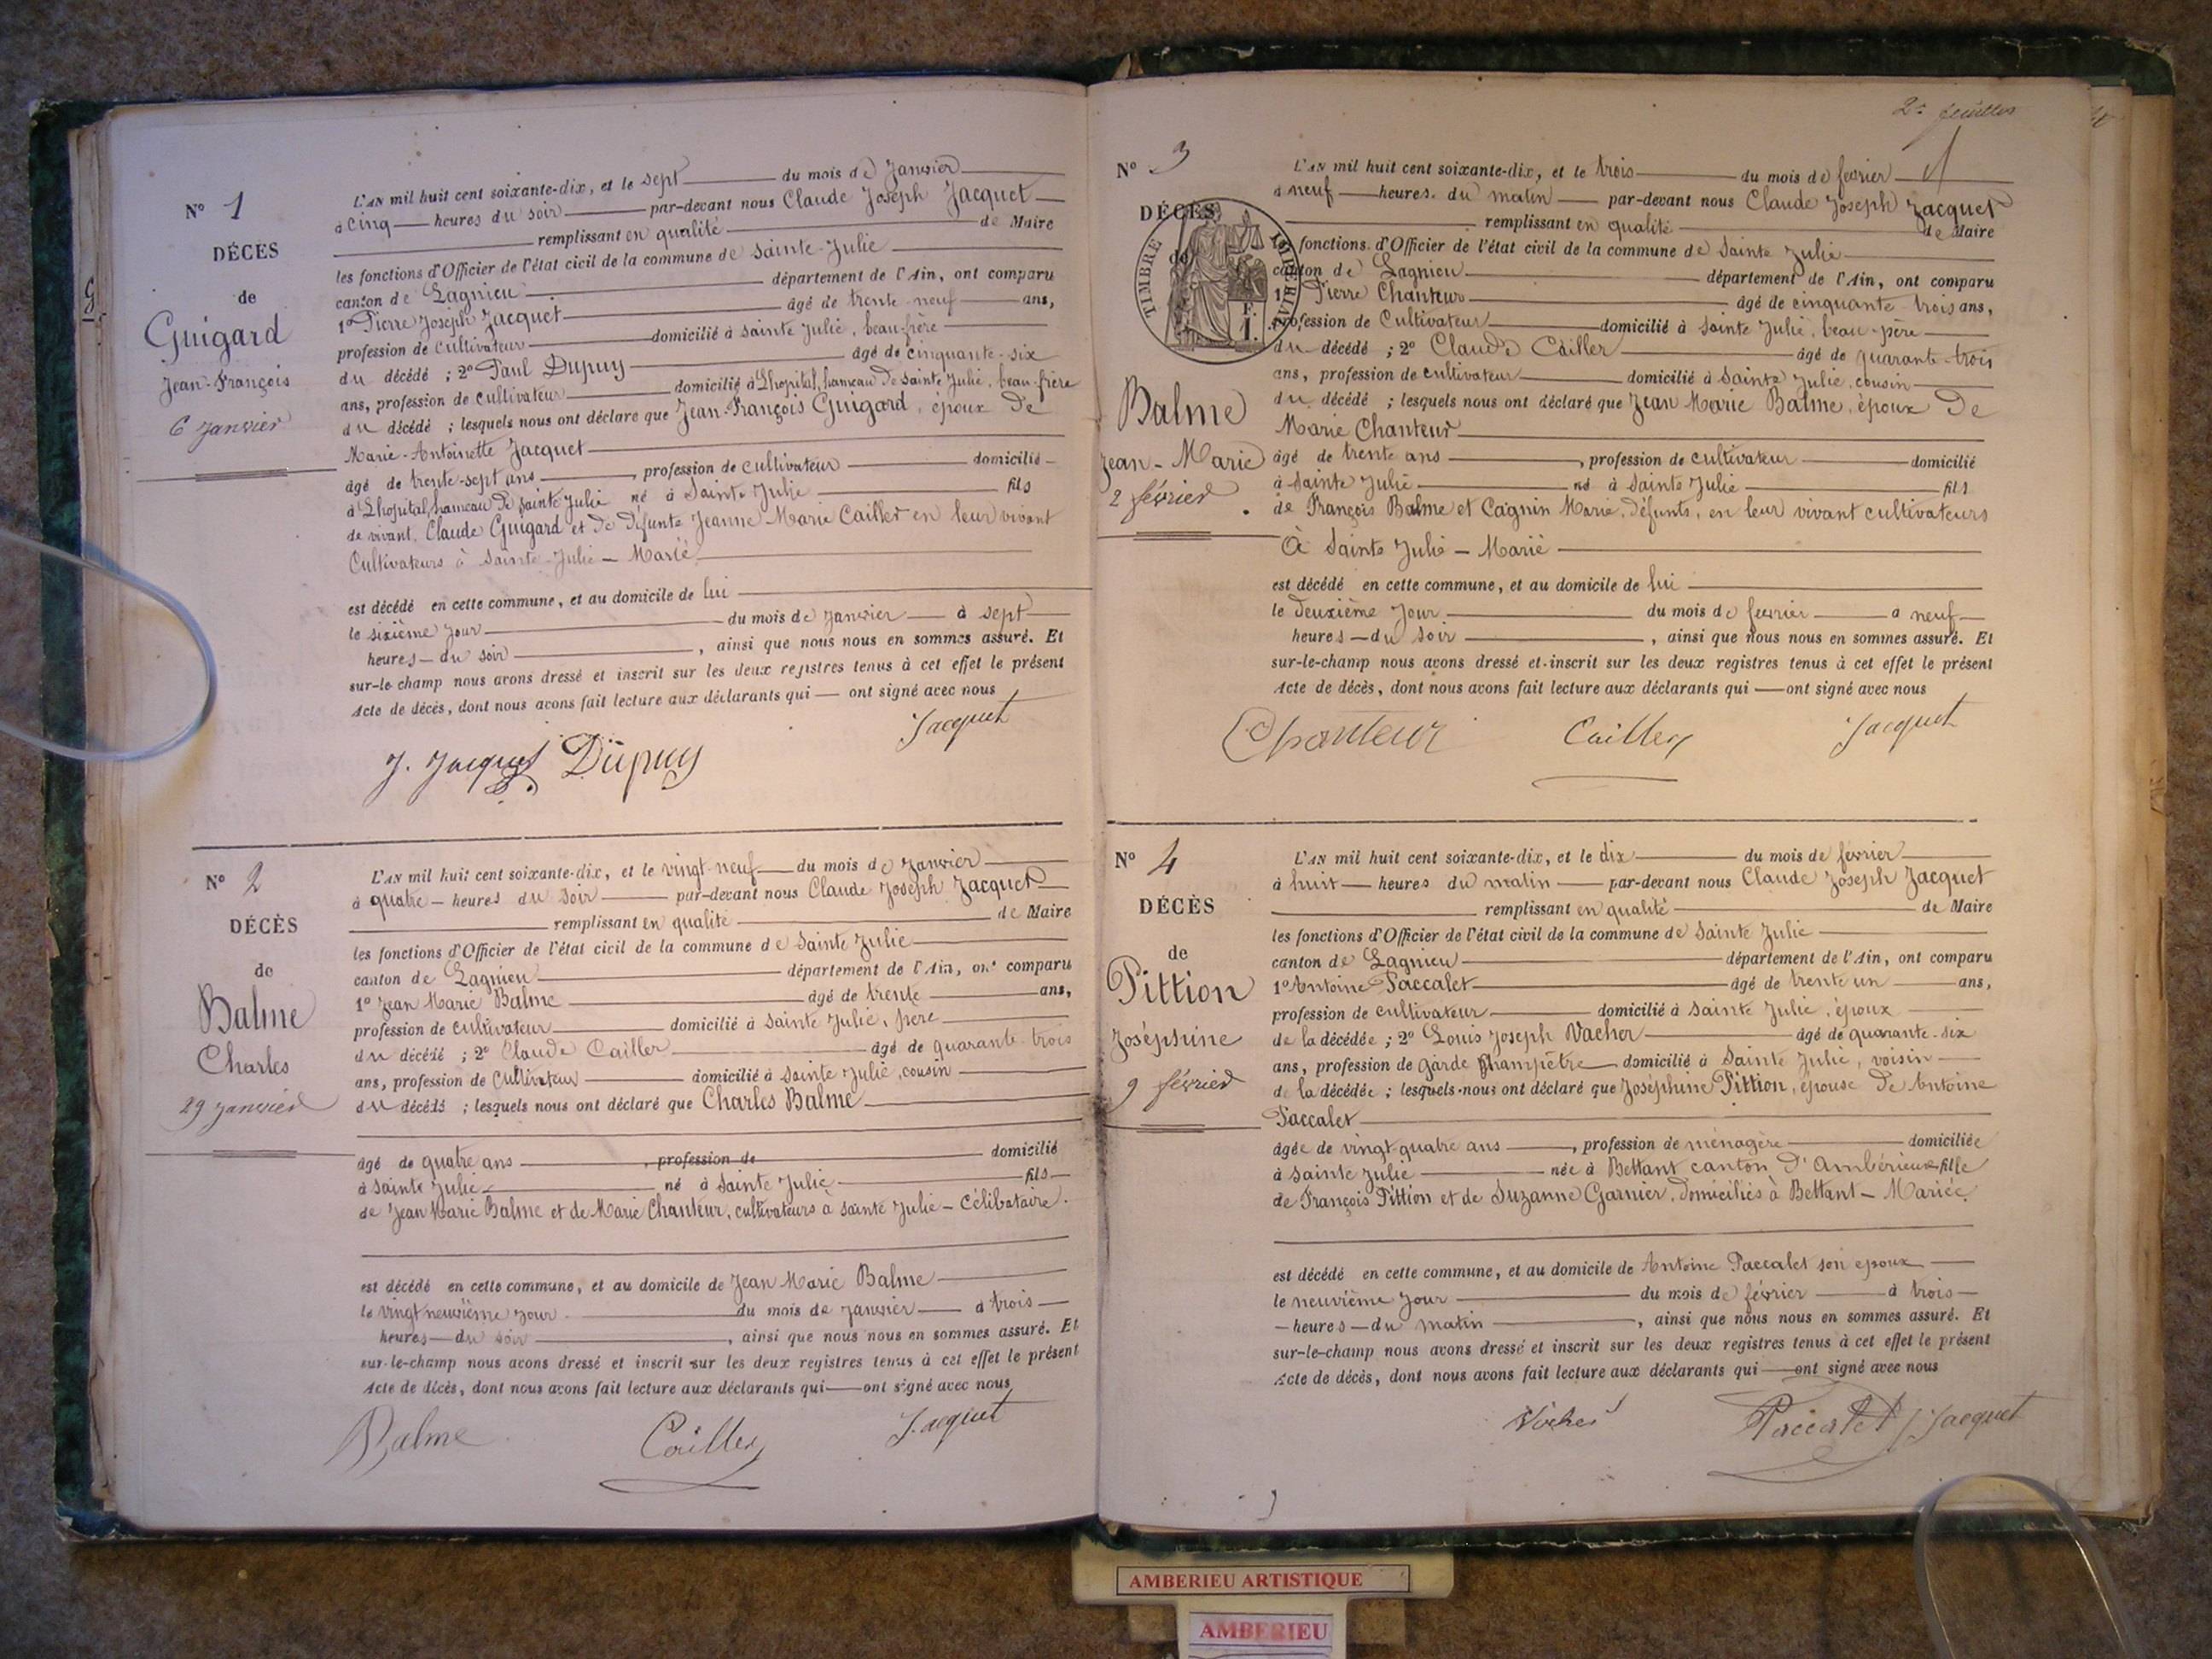 Nº 1
DÉCÈS
de
Guigard
Jean-François
6 Janvier
L'AN mil huit cent soixante-dix, et le sept du mois de Janvier
à cinq heures du soir par-devant nous Claude Joseph Jacquet
remplissant en qualité de Maire
les fonctions d'Officier de l'état civil de la commune de Sainte-Julie
canton de Lagnieu département de l'Ain, ont comparu
1º Pierre Joseph Jacquet âgé de trente-neuf ans,
profession de cultivateur domicilié à Sainte Julie, beau-frère
du décédé ; 2º Paul Dupuy âgé de cinquante-six
ans, profession de cultivateur domicilié à Lhopital, hameau de Sainte Julie, beau-frère
du décédé ; lesquels nous ont déclaré que Jean-François Guigard, époux de
Marie-Antoinette Jacquet
âgé de trente-sept ans, profession de cultivateur domicilié
à Lhopital, hameau de Sainte Julie né à Sainte Julie fils
de vivant, Claude Guigard et de défunte Jeanne-Marie Cailler en leur vivant
Cultivateurs à Sainte-Julie – Marié
est décédé en cette commune, et au domicile de lui
le sixième jour du mois de Janvier à sept
heures du soir, ainsi que nous nous en sommes assuré. Et
sur-le-champ nous avons dressé et inscrit sur les deux registres tenus à cet effet le présent
Acte de décès, dont nous avons fait lecture aux déclarants qui ont signé avec nous
Jacquet
J. Jacquet Dupuy
Nº 2
DÉCÈS
de
Balme
Charles
29 Janvier
L'AN mil huit cent soixante-dix, et le vingt-neuf du mois de Janvier
à quatre heures du soir par-devant nous Claude Joseph Jacquet
remplissant en qualité de Maire
les fonctions d'Officier de l'état civil de la commune de Sainte Julie
canton de Lagnieu département de l'Ain, ont comparu
1º Jean Marie Balme âgé de trente ans,
profession de cultivateur domicilié à Sainte Julie, père
du décédé ; 2º Claude Cailler âgé de quarante-trois
ans, profession de Cultivateur domicilié à Sainte Julie, cousin
du décédé ; lesquels nous ont déclaré que Charles Balme
âgé de quatre ans, profession de domicilié
à Sainte Julie né à Sainte Julie fils
de Jean Marie Balme et de Marie Chanteur, cultivateurs à Sainte Julie – Célibataire.
est décédé en cette commune, et au domicile de Jean Marie Balme
le vingt neuvième jour du mois de Janvier à trois
heures du soir, ainsi que nous nous en sommes assuré. Et
sur-le-champ nous avons dressé et inscrit sur les deux registres tenus à cet effet le présent
Acte de décès, dont nous avons fait lecture aux déclarants qui ont signé avec nous
Balme Cailler Jacquet
2e feuillet
Nº 3
DÉCÈS
de
TIMBRE IMPÉRIAL
F.
1.
Balme
Jean-Marie
2 février
L'AN mil huit cent soixante-dix, et le trois du mois de février
à neuf heures du matin par-devant nous Claude Joseph Jacquet
remplissant en qualité de Maire
fonctions d'Officier de l'état civil de la commune de Sainte Julie
canton de Lagnieu département de l'Ain, ont comparu
1º Pierre Chanteur âgé de cinquante-trois ans,
profession de Cultivateur domicilié à Sainte Julie, beau-père
du décédé ; 2º Claude Cailler âgé de quarante-trois
ans, profession de cultivateur domicilié à Sainte Julie, cousin
du décédé ; lesquels nous ont déclaré que Jean Marie Balme, époux de
Marie Chanteur
âgé de trente ans, profession de cultivateur domicilié
à Sainte Julie né à Sainte Julie fils
de François Balme et Cagnin Marie, défunts, en leur vivant cultivateurs
à Sainte Julie – Marié
est décédé en cette commune, et au domicile de lui
le deuxième jour du mois de février à neuf
heures du soir, ainsi que nous nous en sommes assuré. Et
sur-le-champ nous avons dressé et inscrit sur les deux registres tenus à cet effet le présent
Acte de décès, dont nous avons fait lecture aux déclarants qui ont signé avec nous
Chanteur Cailler Jacquet
Nº 4
DÉCÈS
de
Pittion
Joséphine
9 février
L'AN mil huit cent soixante-dix, et le dix du mois de février
à huit heures du matin par-devant nous Claude Joseph Jacquet
remplissant en qualité de Maire
les fonctions d'Officier de l'état civil de la commune de Sainte Julie
canton de Lagnieu département de l'Ain, ont comparu
1º Antoine Paccalet âgé de trente un ans,
profession de cultivateur domicilié à Sainte Julie, époux
de la décédée ; 2º Louis Joseph Vacher âgé de quarante-six
ans, profession de garde champêtre domicilié à Sainte Julie, voisin
de la décédée ; lesquels nous ont déclaré que Joséphine Pittion, épouse de Antoine
Paccalet
âgée de vingt-quatre ans, profession de ménagère domiciliée
à Sainte Julie née à Bettant canton d'Ambérieux fille
de François Pittion et de Suzanne Garnier, domiciliés à Bettant – Mariée
est décédé en cette commune, et au domicile de Antoine Paccalet son époux
le neuvième jour du mois de février à trois
heures du matin, ainsi que nous nous en sommes assuré. Et
sur-le-champ nous avons dressé et inscrit sur les deux registres tenus à cet effet le présent
Acte de décès, dont nous avons fait lecture aux déclarants qui ont signé avec nous
Vacher Paccalet Jacquet
AMBERIEU ARTISTIQUE
AMBERIEU